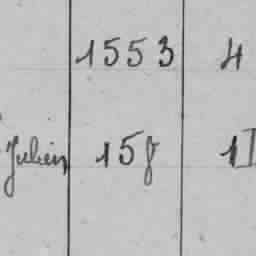 1553 4
Julien 158